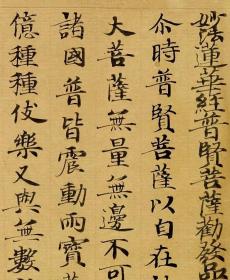 妙法蓮華經普賢菩薩勸發品
尒時普賢菩薩以自在
大菩薩無量無邊不可
諸國普皆震動雨寶
億種種伎樂又與無數